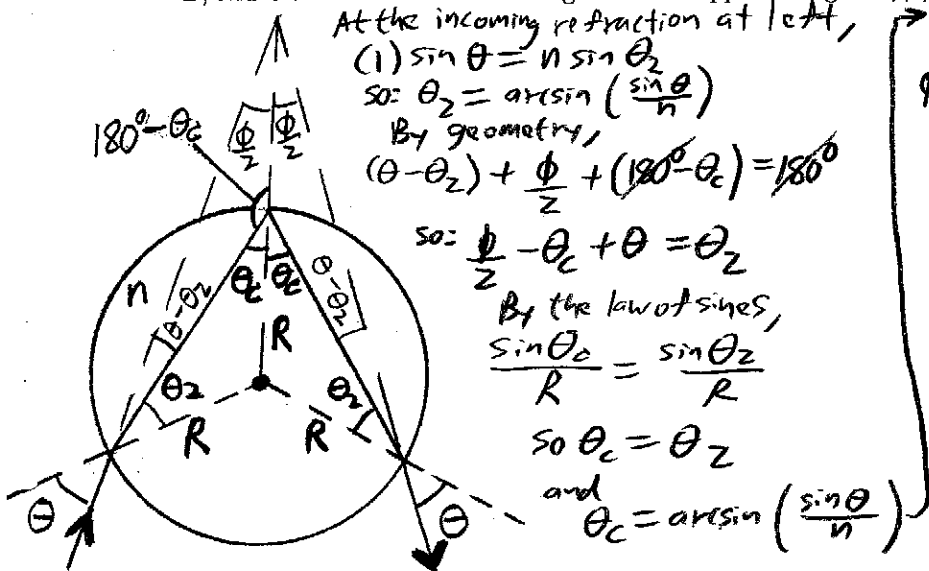 At the incoming refraction at left,
(1) sin θ = n sin θ₂
so: θ₂ = arcsin (sin θ / n)
By geometry,
(θ-θ₂) + ϕ/2 + (180°-θc) = 180°
so: ϕ/2 - θc + θ = θ₂
By the law of sines,
sin θc / R = sin θ₂ / R
so θc = θ₂
and
θc = arcsin (sin θ / n)
180°-θc
ϕ/2 ϕ/2
n
θ-θ₂
θc θc
θ-θ₂
R
θ₂
θ₂
R
R
θ
θ